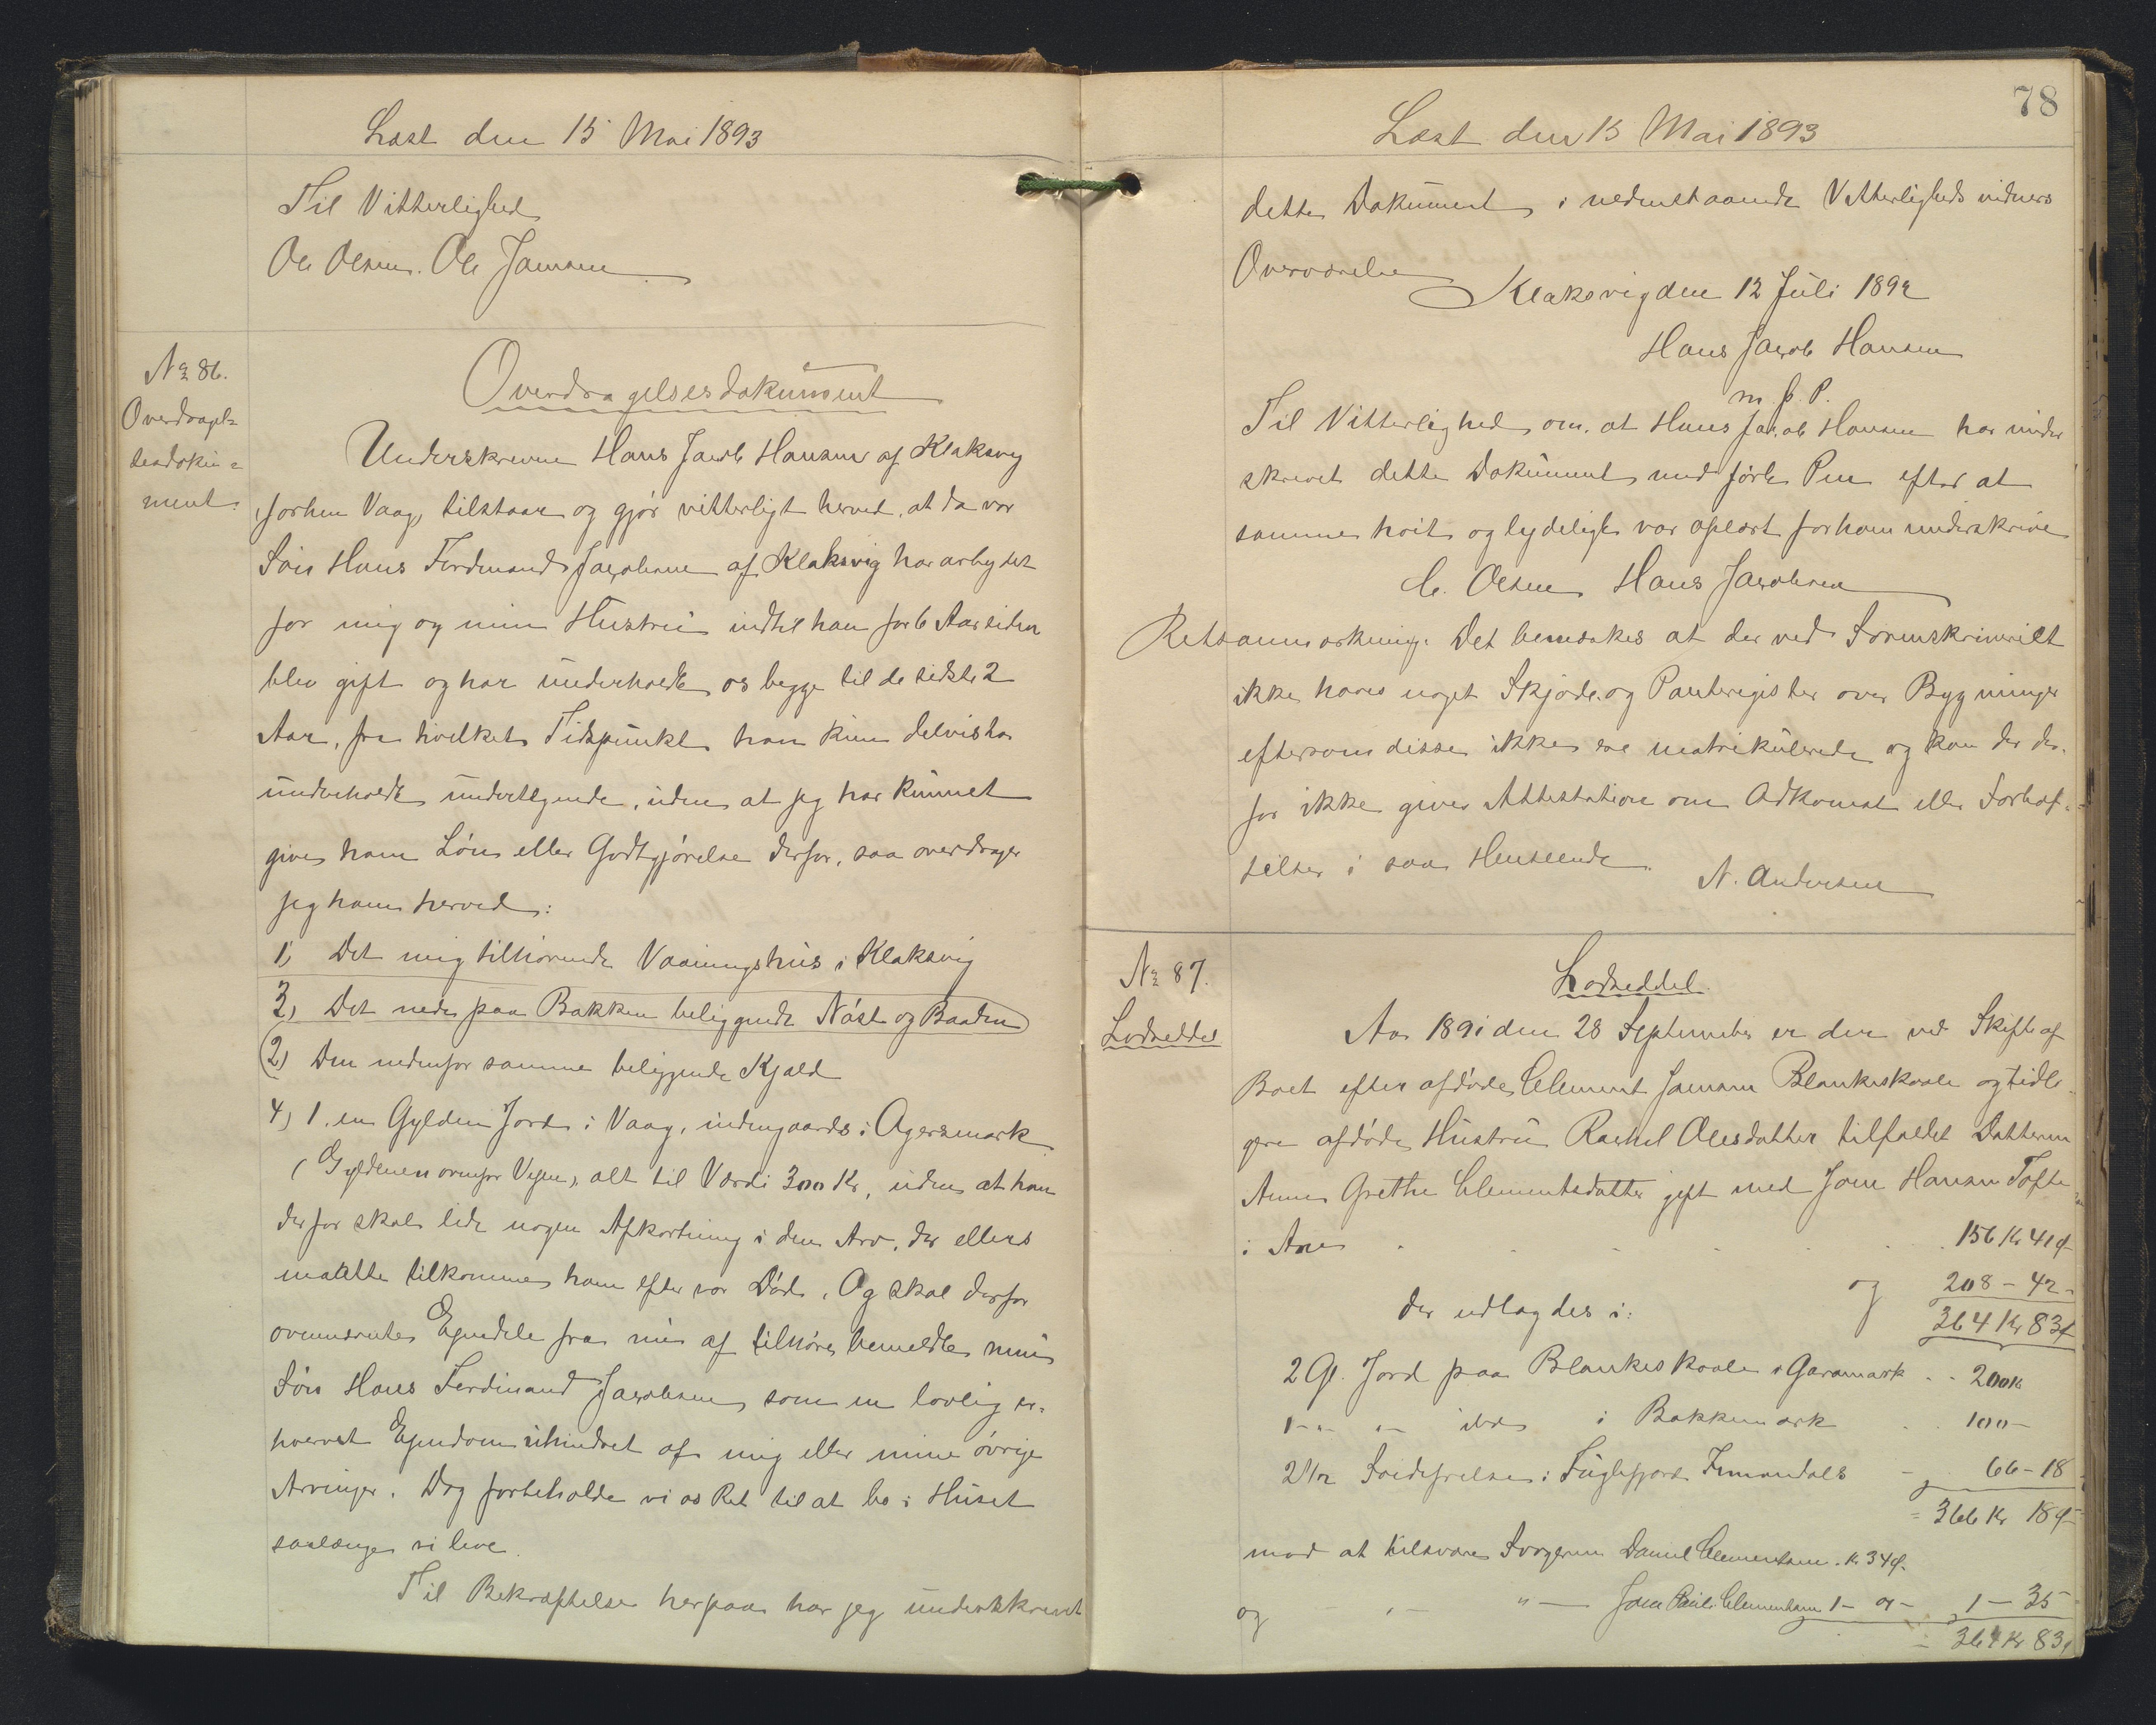 Læst den 15 Mai 1893
Til Vitterlighed
Ole Olsen. Ole Jensen
No 86.
Overdragel=
sesdoku=
ment.
Overdragelsesdokument
Underskrevne Hans Jacob Hansen af Klaksvig
forhen Vaag, tilstaar og gjør vitterligt herved, at da vor
Søn Hans Ferdinand Jacobsen af Klaksvig har arbejdet
for mig og min Hustru indtil han for 6 Aar siden
blev gift og har underholdt os begge til de sidste 2
Aar, fra hvilket Tidspunkt han kun delvis har
underholdt undertegnede, uden at jeg har kunnet
give ham Løn eller Godtgjørelse derfor, saa overdrager
jeg ham herved:
1) Det mig tilhørende Vaaningshus i Klaksvig
3) Det nede paa Bakken beliggende Nøst og Baaden
2) Den nedenfor samme beliggende Kjald
4) 1. en Gylden Jord i Vaag, indengaards i Agersmark
(Gyldenen ovenfor Vejen), alt til Værdi 300 Kr, uden at han
derfor skal lide nogen Afkortning i den Arv, der ellers
maatte tilkomme ham efter vor Død. Og skal derfor
ovennævnte Ejendele fra nu af tilhøre bemeldte min
Søn Hans Ferdinand Jacobsen, som en lovlig er=
hvervet Ejendom uhindret af mig eller mine øvrige
Arvinger. Dog forbeholde vi os Ret til at bo i Huset
saalænge vi leve.
Til Bekræftelse herpaa har jeg underskrevet
78
Læst den 15 Mai 1893
dette Dokument i nedenstaaende Vitterligheds vidners
Overværelse
Klaksvig den 12 Juli 1892
Hans Jacob Hansen
m. f. P.
Til Vitterlighed om, at Hans Jacob Hansen har under
skrevet dette Dokument med ført Pen efter at
samme høit og lydeligt var oplæst for ham underskrive
C. Olsen Hans Jacobsen
Retsanmærkning. Det bemærkes at der ved Sorenskriveriet
ikke haves noget Skjøde. og Panteregister over Bygninger
eftersom disse ikke ere matrikulerede og kan der der.
for ikke gives Attestation om Adkomst eller Forhæf=
telser i saa Henseende.
N. Andersen
No 87.
Lodseddel
Lodseddel.
Aar 1891 den 28 September er der ved Skifte af
Boet efter afdøde Clement Joensen Blankeskaale og tidli
gere afdøde Hustru Rachel Olesdatter tilfaldet Datteren
Anne Grethe Clementsdatter gift med Joen Hansen Tofte
i Arv . . . . . 156 Kr 41 ø
og 208 - 42 -
der udlagdes i: 364 Kr 83 ø
2 Gl. Jord paa Blankeskaale i Garamark . . 200 Kr
1 - " - " - ibd i Bakkemark . . 100 -
2 1/2 Søidefrelse i Fuglefjord - 66 - 18
= 366 Kr 18 ø
mod at tilsvare Svogeren Daniel Clementsen . Kr 34 ø.
og - " - " - Joen Pauli Clementsen 1 - 01 - 1 - 35
= 364 Kr 83 ø